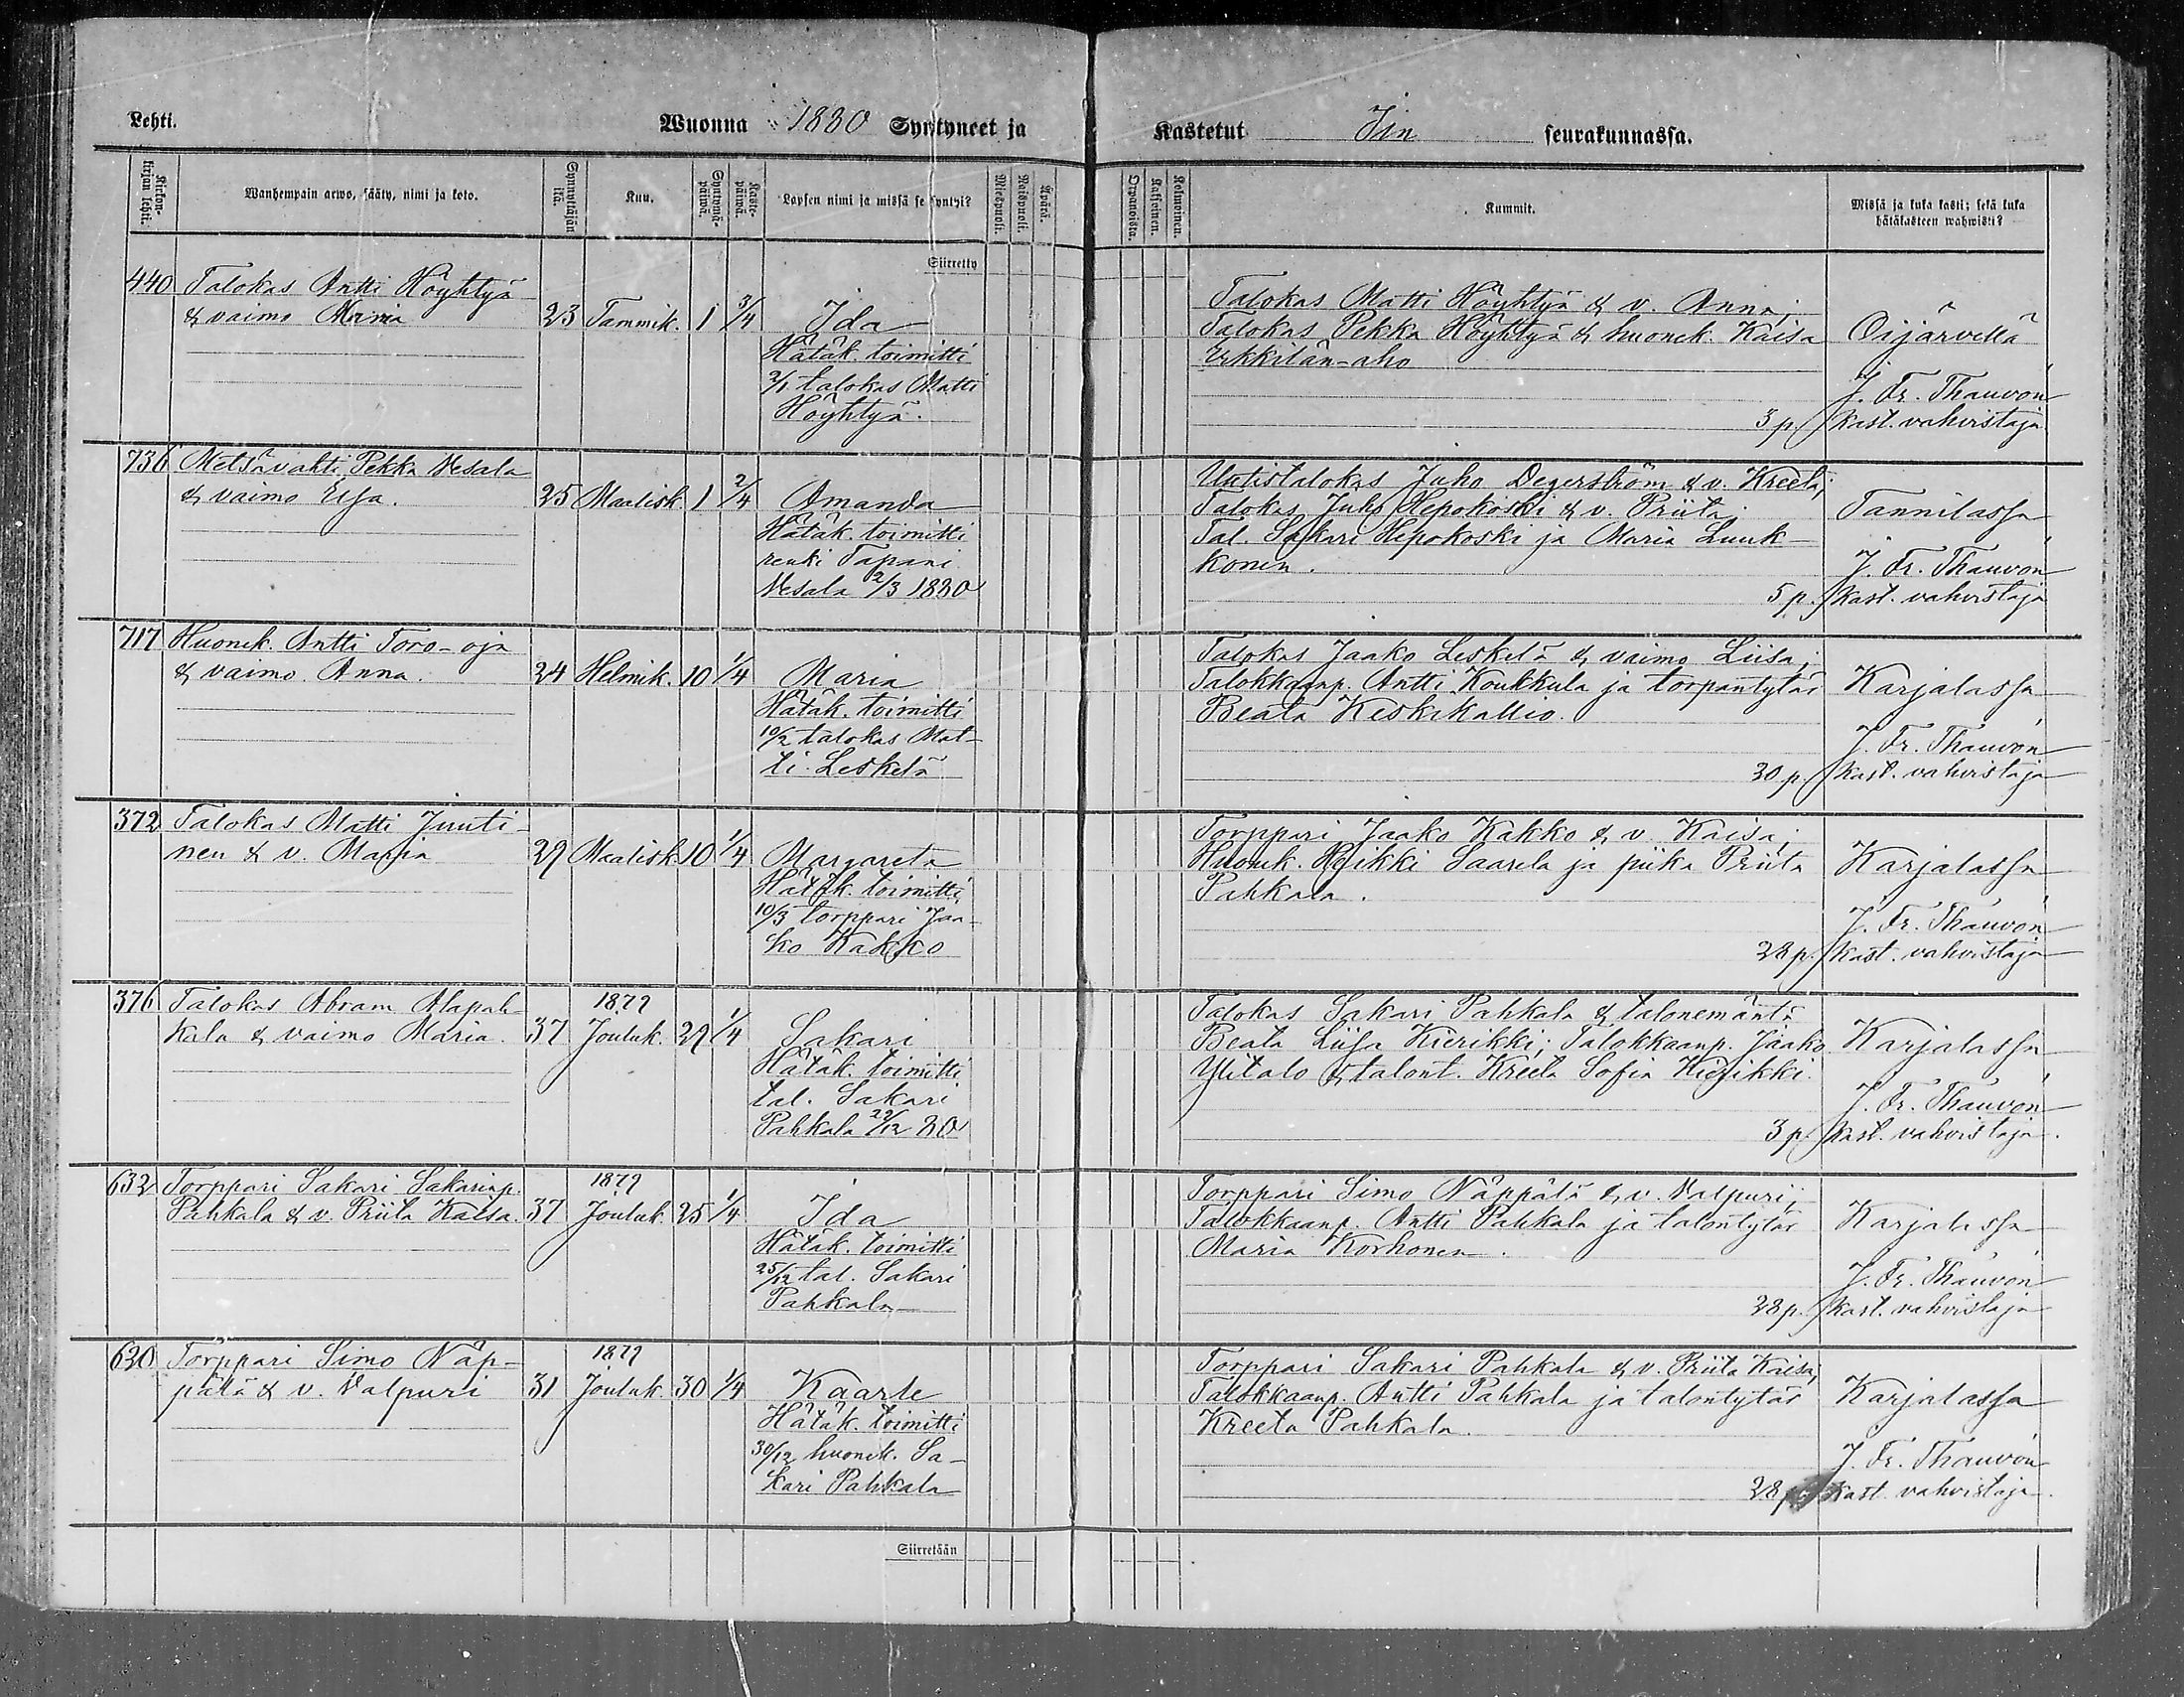 Lehti.
Wuonna 1880 Syntyneet ja
Kastetut Iin seurakunnassa.
Kirkon-
kirjan lehti.
Wanhempain arwo, sääty, nimi ja koto.
Synnyttäjän
ikä.
Kuu.
Syntymä-
päiwä.
Kaste-
päiwä.
Lapsen nimi ja missä se syntyi?
Miespuoli.
Waimopuoli.
Awiosta.
Kaksoinen.
Kolmoinen.
Kummit.
Missä ja kuka kasti; sekä kuka
hätäkasteen wahwisti?
Siirretty
440 Talokas Antti Höyhtyä
& vaimo Maria 23 Tammik. 1 3/4 Ida
Hätäk. toimitti
2/1 talokas Matti
Höyhtyä.
Talokas Matti Höyhtyä & v. Anna;
Talokas Pekka Höyhtyä & huonek. Kaisa
Erkkilän-aho
3 p.
Oijärvellä
J. Fr. Thauvón
kast. vahvistaja
736 Metsävahti Pekka Vesala
& vaimo Eija. 25 Maalisk. 1 2/4 Amanda
Hätäk. toimitti
renki Tapani
Vesala 2/3 1880
Uutistalokas Juho Degerström & v. Kreeta;
Talokas Juho Hepokoski & v. Priita;
Tal. Sakari Hepokoski ja Maria Luuk-
konen.
5 p.
Tannilassa
J. Fr. Thauvón
kast. vahvistaja
717 Huonek. Antti Toro-oja
& vaimo Anna. 24 Helmik. 10 1/4 Maria
Hätäk. toimitti
10/2 talokas Mat-
ti Leskelä
Talokas Jaako Leskelä & vaimo Liisa;
Talokkaanp. Antti Koukkula ja torpantytär
Beata Keskikallio.
30 p.
Karjalassa
J. Fr. Thauvón
kast. vahvistaja
372 Talokas Matti Juuti-
nen & v. Maria 29 Maalisk. 10 1/4 Margareta
Hätäk. toimitti
10/3 torppari Jaa-
ko Kakko
Torppari Jaako Kakko & v. Kaisa;
Huonek. Heikki Saarela ja piika Priita
Pahkala.
28 p.
Karjalassa
J. Fr. Thauvón
kast. vahvistaja
376 Talokas Abram Alapah-
kala & vaimo Maria. 37 1879 Jouluk. 29 1/4 Sakari
Hätäk. toimitti
tal. Sakari
Pahkala 29/12 80
Talokas Sakari Pahkala & talonemäntä
Beata Liisa Kierikki; Talokkaanp. Jaako
Ylitalo & talont. Kreeta Sofia Kierikki.
3 p.
Karjalassa
J. Fr. Thauvón
kast. vahvistaja.
632 Torppari Sakari Sakarinp.
Pahkala & v. Priita Kaisa. 37 1879 Jouluk. 25 1/4 Ida
Hätäk. toimitti
25/12 tal. Sakari
Pahkala
Torppari Simo Näppälä & v. Valpuri;
Talokkaanp. Antti Pahkala ja talontytär
Maria Korhonen.
28 p.
Karjalassa
J. Fr. Thauvón
kast. vahvistaja
630 Torppari Simo Näp-
pälä & v. Valpuri 31 1879 Jouluk. 30 1/4 Kaarle
Hätäk. toimitti
30/12 huonek. Sa-
kari Pahkala
Torppari Sakari Pahkala & v. Priita Kaisa;
Talokkaanp. Antti Pahkala ja talontytär
Kreeta Pahkala.
28 p.
Karjalassa
J. Fr. Thauvón
kast. vahvistaja.
Siirretään